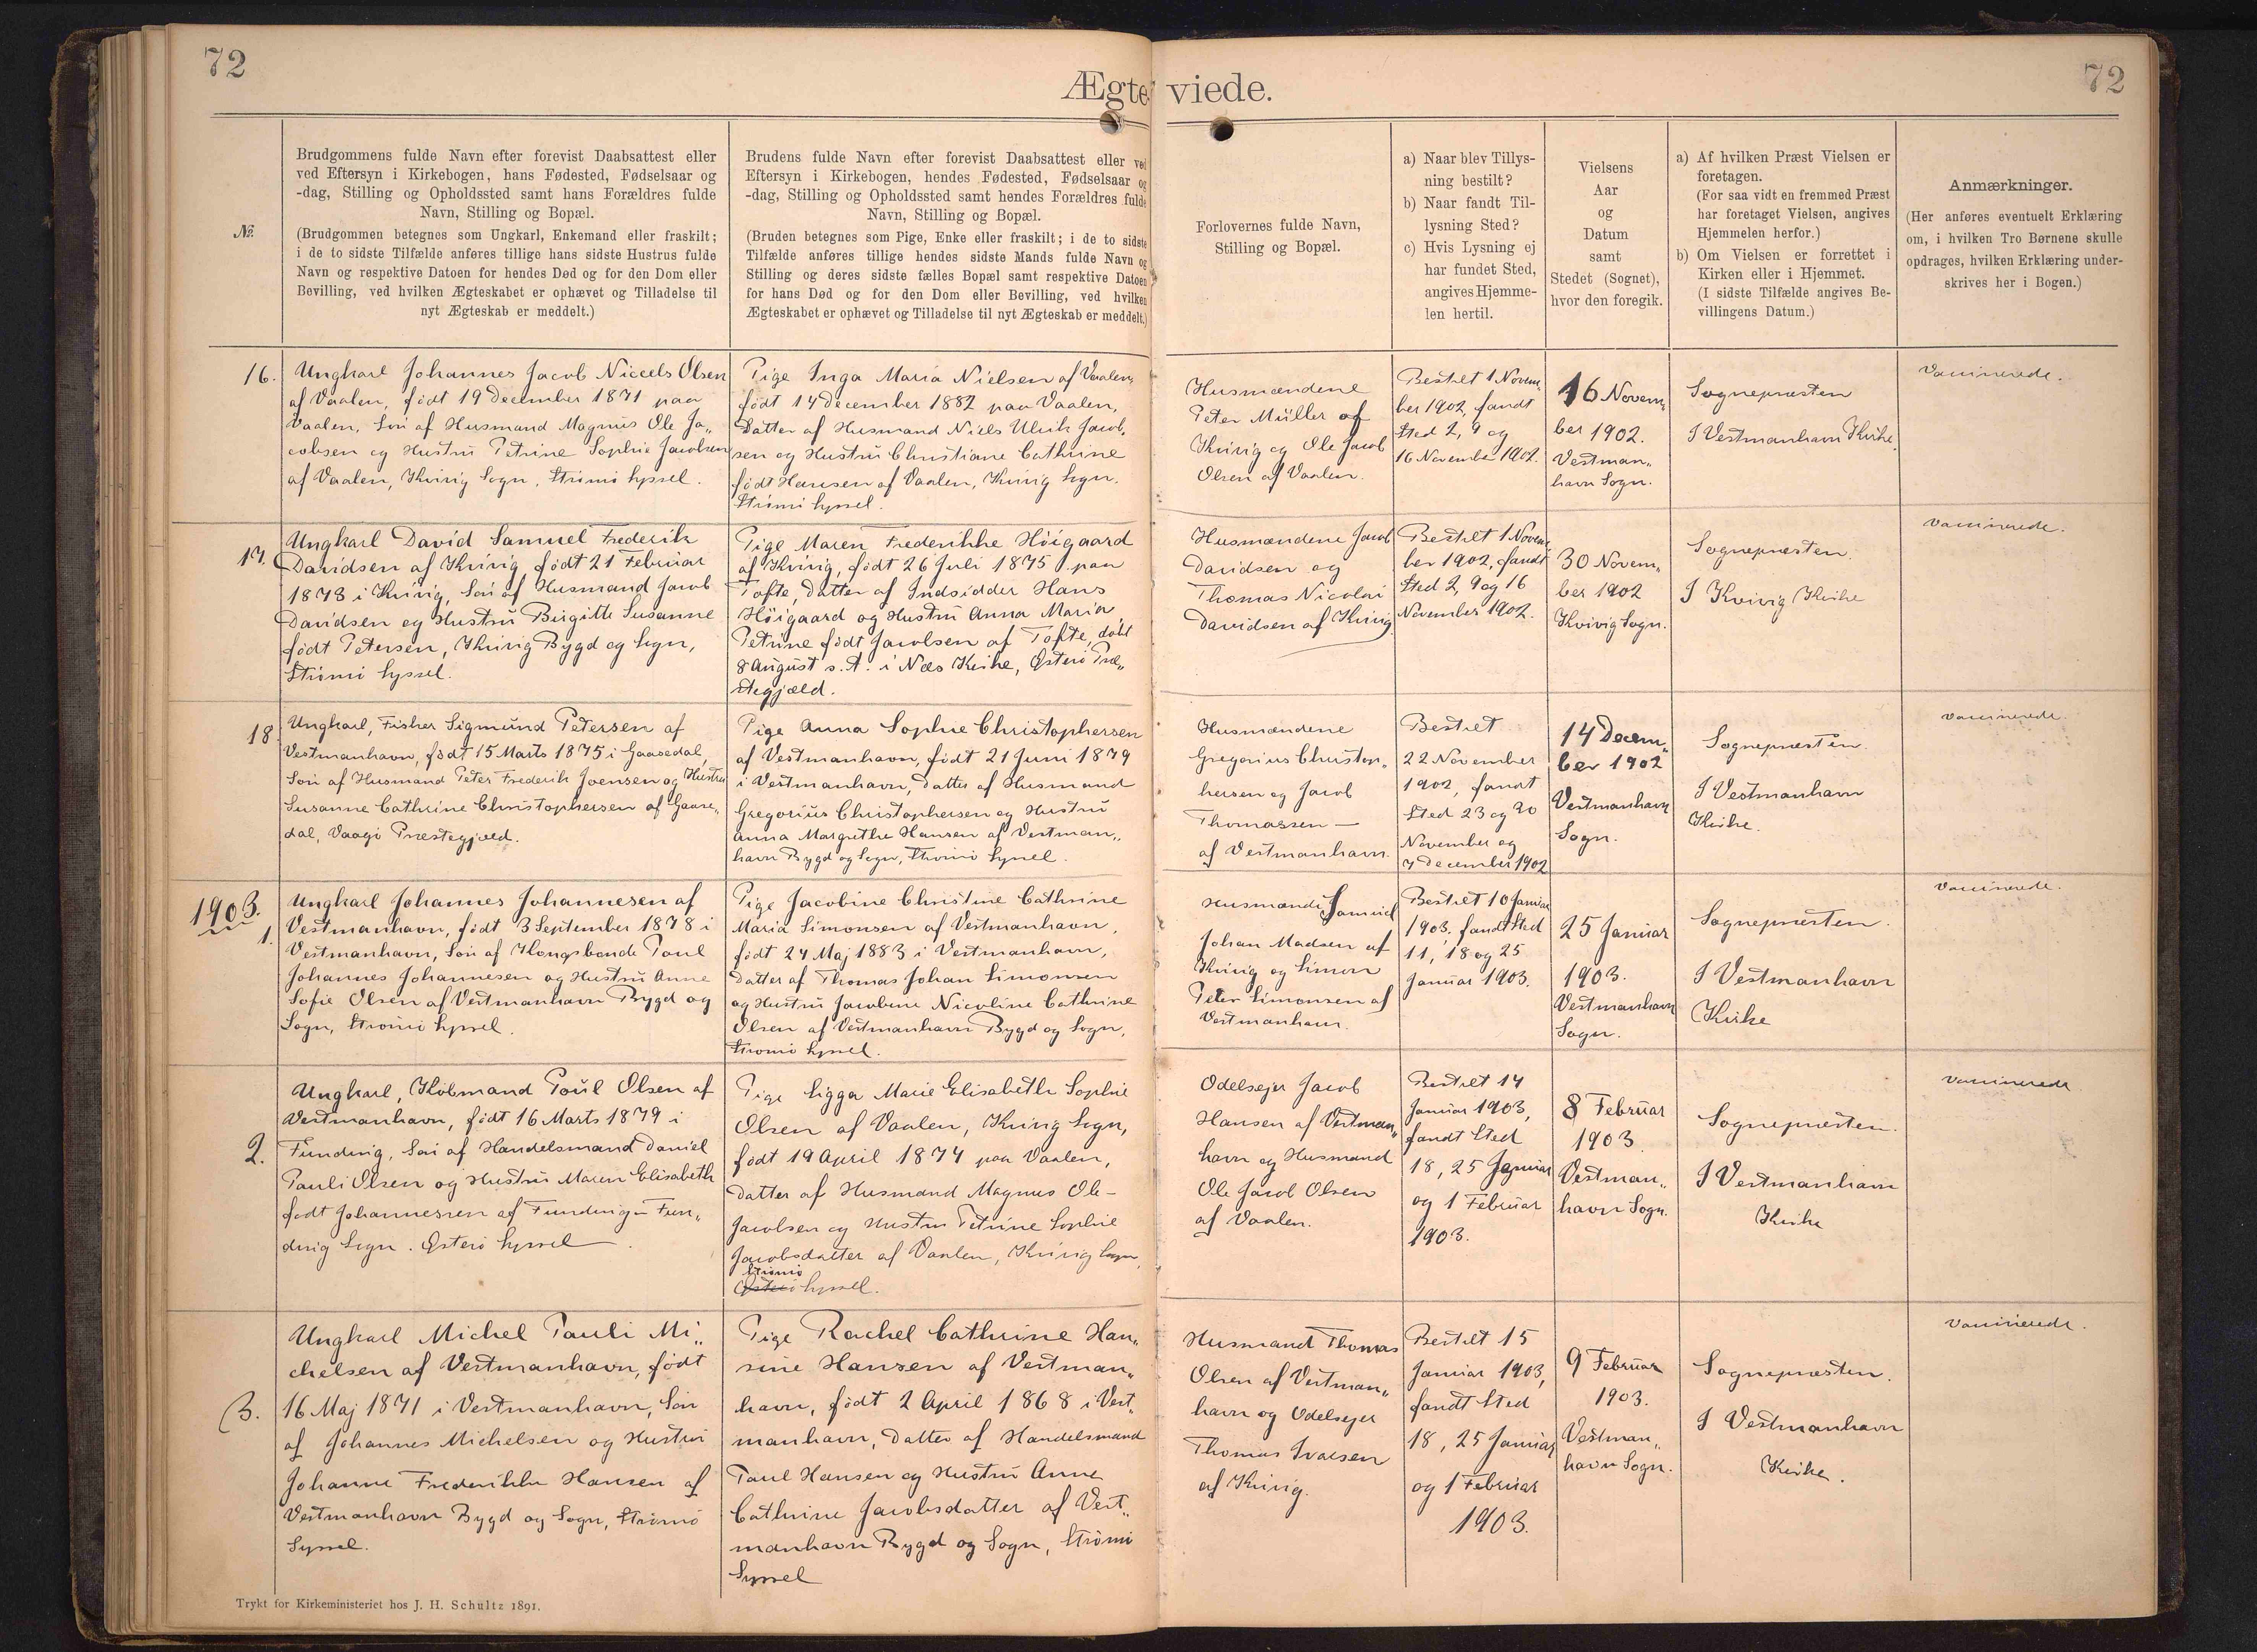 72
72
Ægteviede.
№.
Brudgommens fulde Navn efter forevist Daabsattest eller
ved Eftersyn i Kirkebogen, hans Fødested, Fødselsaar og
-dag, Stilling og Opholdssted samt hans Forældres fulde
Navn, Stilling og Bopæl.
(Brudgommen betegnes som Ungkarl, Enkemand eller fraskilt;
i de to sidste Tilfælde anføres tillige hans sidste Hustrus fulde
Navn og respektive Datoen for hendes Død og for den Dom eller
Bevilling, ved hvilken Ægteskabet er ophævet og Tilladelse til
nyt Ægteskab er meddelt.)
Brudens fulde Navn efter forevist Daabsattest eller ved
Eftersyn i Kirkebogen, hendes Fødested, Fødselsaar og
-dag, Stilling og Opholdssted samt hendes Forældres fulde
Navn, Stilling og Bopæl.
(Bruden betegnes som Pige, Enke eller fraskilt; i de to sidste
Tilfælde anføres tillige hendes sidste Mands fulde Navn og
Stilling og deres sidste fælles Bopæl samt respektive Datoen
for hans Død og for den Dom eller Bevilling, ved hvilken
Ægteskabet er ophævet og Tilladelse til nyt Ægteskab er meddelt.)
Forlovernes fulde Navn,
Stilling og Bopæl.
a) Naar blev Tillys-
ning bestilt?
b) Naar fandt Til-
lysning Sted?
c) Hvis Lysning ej
har fundet Sted,
angives Hjemme-
len hertil.
Vielsens
Aar
og
Datum
samt
Stedet (Sognet),
hvor den foregik.
a) Af hvilken Præst Vielsen er
foretagen.
(For saa vidt en fremmed Præst
har foretaget Vielsen, angives
Hjemmelen herfor.)
b) Om Vielsen er forrettet i
Kirken eller i Hjemmet.
(I sidste Tilfælde angives Be-
villingens Datum.)
Anmærkninger.
(Her anføres eventuelt Erklæring
om, i hvilken Tro Børnene skulle
opdrages, hvilken Erklæring under-
skrives her i Bogen.)
16.
Ungkarl Johannes Jacob Niceels Olsen
af Vaalen, født 19 December 1871 paa
Vaalen, Søn af Husmand Magnus Ole Ja„
cobsen og Hustru Petrine Sophie Jacobsen
af Vaalen, Kvivig Sogn, Strømø Syssel.
Pige Inga Maria Nielsen af Vaalen,
født 14 December 1882 paa Vaalen,
Datter af Husmand Niels Ulrik Jacob„
sen og Hustru Christiane Cathrine
født Hansen af Vaalen, Kvivig Sogn.
Strømø Syssel.
Husmændene
Peter Müller af
Kvivig og Ole Jacob
Olsen af Vaalen.
Bestilt 1 Novem„
ber 1902, fandt
Sted 2, 9 og
16 November 1902.
16 Novem„
ber 1902.
Vestman„
havn Sogn.
Sognepræsten
I Vestmanhavn Kirke.
Vaccinerede.
17.
Ungkarl David Samuel Frederik
Davidsen af Kvivig født 21 Februar
1873 i Kvivig, Søn af Husmand Jacob
Davidsen og Hustru Birgitte Susanne
født Petersen, Kvivig Bygd og Sogn,
Strømø Syssel.
Pige Maren Frederikke Höigaard
af Kvivig, født 26 Juli 1875 paa
Tofte, Datter af Indsidder Hans
Höigaard og Hustru Anna Maria
Petrine født Jacobsen af Tofte, døbt
8 August s. A. i Næs Kirke, Østerø Præ„
stegjæld.
Husmændene Jacob
Davidsen og
Thomas Nicolai
Davidsen af Kvivig.
Bestilt 1 Novem„
ber 1902, fandt
Sted 2, 9 og 16
November 1902.
30 Novem„
ber 1902
Kvivig Sogn.
Sognepræsten.
I Kvivig Kirke
Vaccinerede.
18.
Ungkarl, Fisker Sigmund Petersen af
Vestmanhavn, født 15 Marts 1875 i Gaasedal,
Søn af Husmand Peter Frederik Joensen og Hustru
Susanne Cathrine Christophersen af Gaase„
dal, Vaagø Præstegjæld.
Pige Anna Sophie Christophersen
af Vestmanhavn, født 21 Juni 1879
i Vestmanhavn, Datter af Husmand
Gregorius Christophersen og Hustru
Anna Margrethe Hansen af Vestman„
havn Bygd og Sogn, Strømø Syssel.
Husmændene
Gregorius Christop„
hersen og Jacob
Thomassen —
af Vestmanhavn.
Bestilt
22 November
1902, fandt
Sted 23 og 30
November og
7 December 1902
14 Decem„
ber 1902
Vestmanhavn
Sogn.
Sognepræsten.
I Vestmanhavn
Kirke.
Vaccinerede.
1903.
1.
Ungkarl Johannes Johannesen af
Vestmanhavn, født 3 September 1878 i
Vestmanhavn, Søn af Kongsbonde Poul
Johannes Johannesen og Hustru Anne
Sofie Olsen af Vestmanhavn Bygd og
Sogn, Strømø Syssel.
Pige Jacobine Christine Cathrine
Maria Simonsen af Vestmanhavn,
født 24 Maj 1883 i Vestmanhavn,
Datter af Thomas Johan Simonsen
og Hustru Jacobine Nicoline Cathrine
Olsen af Vestmanhavn Bygd og Sogn,
Strømø Syssel.
Husmænde Samuel
Johan Madsen af
Kvivig og Simon
Peter Simonsen af
Vestmanhavn.
Bestilt 10 Januar
1903, fandt Sted
11, 18 og 25
Januar 1903.
25 Januar
1903.
Vestmanhavn
Sogn.
Sognepræsten.
I Vestmanhavn
Kirke
Vaccinerede.
2.
Ungkarl, Købmand Poul Olsen af
Vestmanhavn, født 16 Marts 1879 i
Funding, Søn af Handelsmand Daniel
Pauli Olsen og Hustru Maren Elisabeth
født Johannessen af Funding – Fun„
ding Sogn. Østerø Syssel.
Pige Sigga Marie Elisabeth Sophie
Olsen af Vaalen, Kvivig Sogn,
født 19 April 1874 paa Vaalen,
Datter af Husmand Magnus Ole-
Jacobsen og Hustru Petrine Sophie
Jacobsdatter af Vaalen, Kvivig Sogn,
Strømø
Østerø Syssel.
Odelsejer Jacob
Hansen af Vestman„
havn og Husmand
Ole Jacob Olsen
af Vaalen.
Bestilt 14
Januar 1903,
fandt Sted
18, 25 Januar
og 1 Februar
1903.
8 Februar
1903
Vestman„
havn Sogn.
Sognepræsten.
I Vestmanhavn
Kirke
Vaccinerede
3.
Ungkarl Michel Pauli Mi„
chelsen af Vestmanhavn, født
16 Maj 1871 i Vestmanhavn, Søn
af Johannes Michelsen og Hustru
Johanne Frederikke Hansen af
Vestmanhavn Bygd og Sogn, Strømø
Syssel.
Pige Rachel Cathrine Han„
sine Hansen af Vestman„
havn, født 2 April 1868 i Vest„
manhavn, Datter af Handelsmand
Poul Hansen og Hustru Anne
Cathrine Jacobsdatter af Vest„
manhavn Bygd og Sogn, Strømø
Syssel
Husmand Thomas
Olsen af Vestman„
havn og Odelsejer
Thomas Ivarsen
af Kvivig.
Bestilt 15
Januar 1903,
fandt Sted
18, 25 Januar
og 1 Februar
1903.
9 Februar
1903.
Vestman„
havn Sogn.
Sognepræsten.
I Vestmanhavn
Kirke.
Vaccinerede.
Trykt for Kirkeministeriet hos J. H. Schultz 1891.